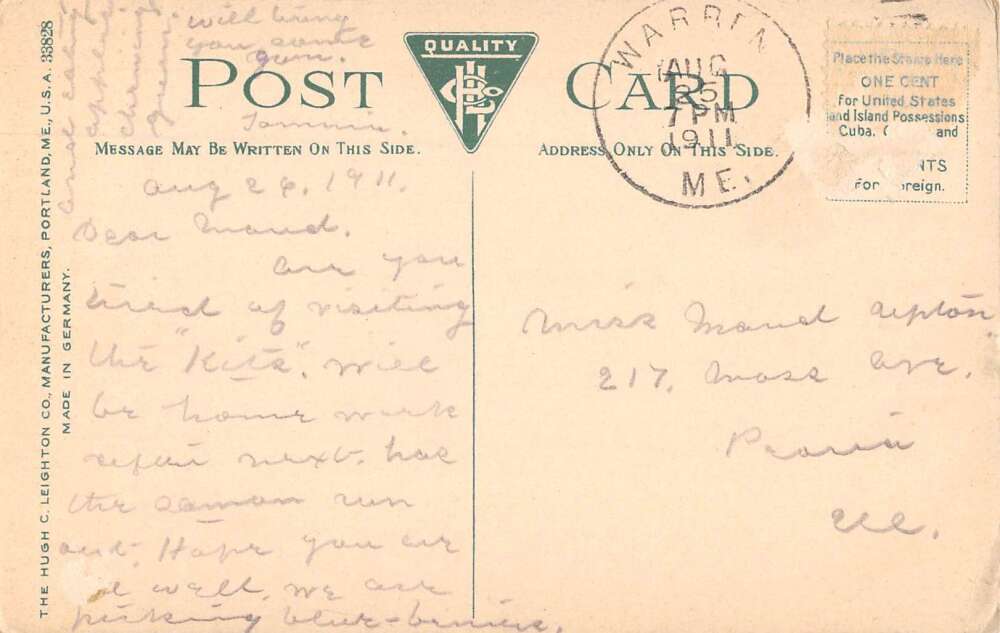 THE HUGH C. LEIGHTON CO., MANUFACTURERS, PORTLAND, ME., U.S.A. 33828
MADE IN GERMANY.
QUALITY
POST CARD
MESSAGE MAY BE WRITTEN ON THIS SIDE.
ADDRESS ONLY ON THIS SIDE.
WARREN
AUG
25
7 PM
1911
ME.
Place the Stamp Here
ONE CENT
for United States
and Island Possessions
Cuba, and
NTS
for oreign.
Aug 26, 1911.
Dear Maud.
Are you
tired of visiting
the "Kits". Will
be home week
after next. has
the samon run
out. Hope you are
well. We are
picking blue-berries.
will bring
you some
gum.
Tommie.
Miss Maud
217. Moss Ave.
Peoria
Ill.